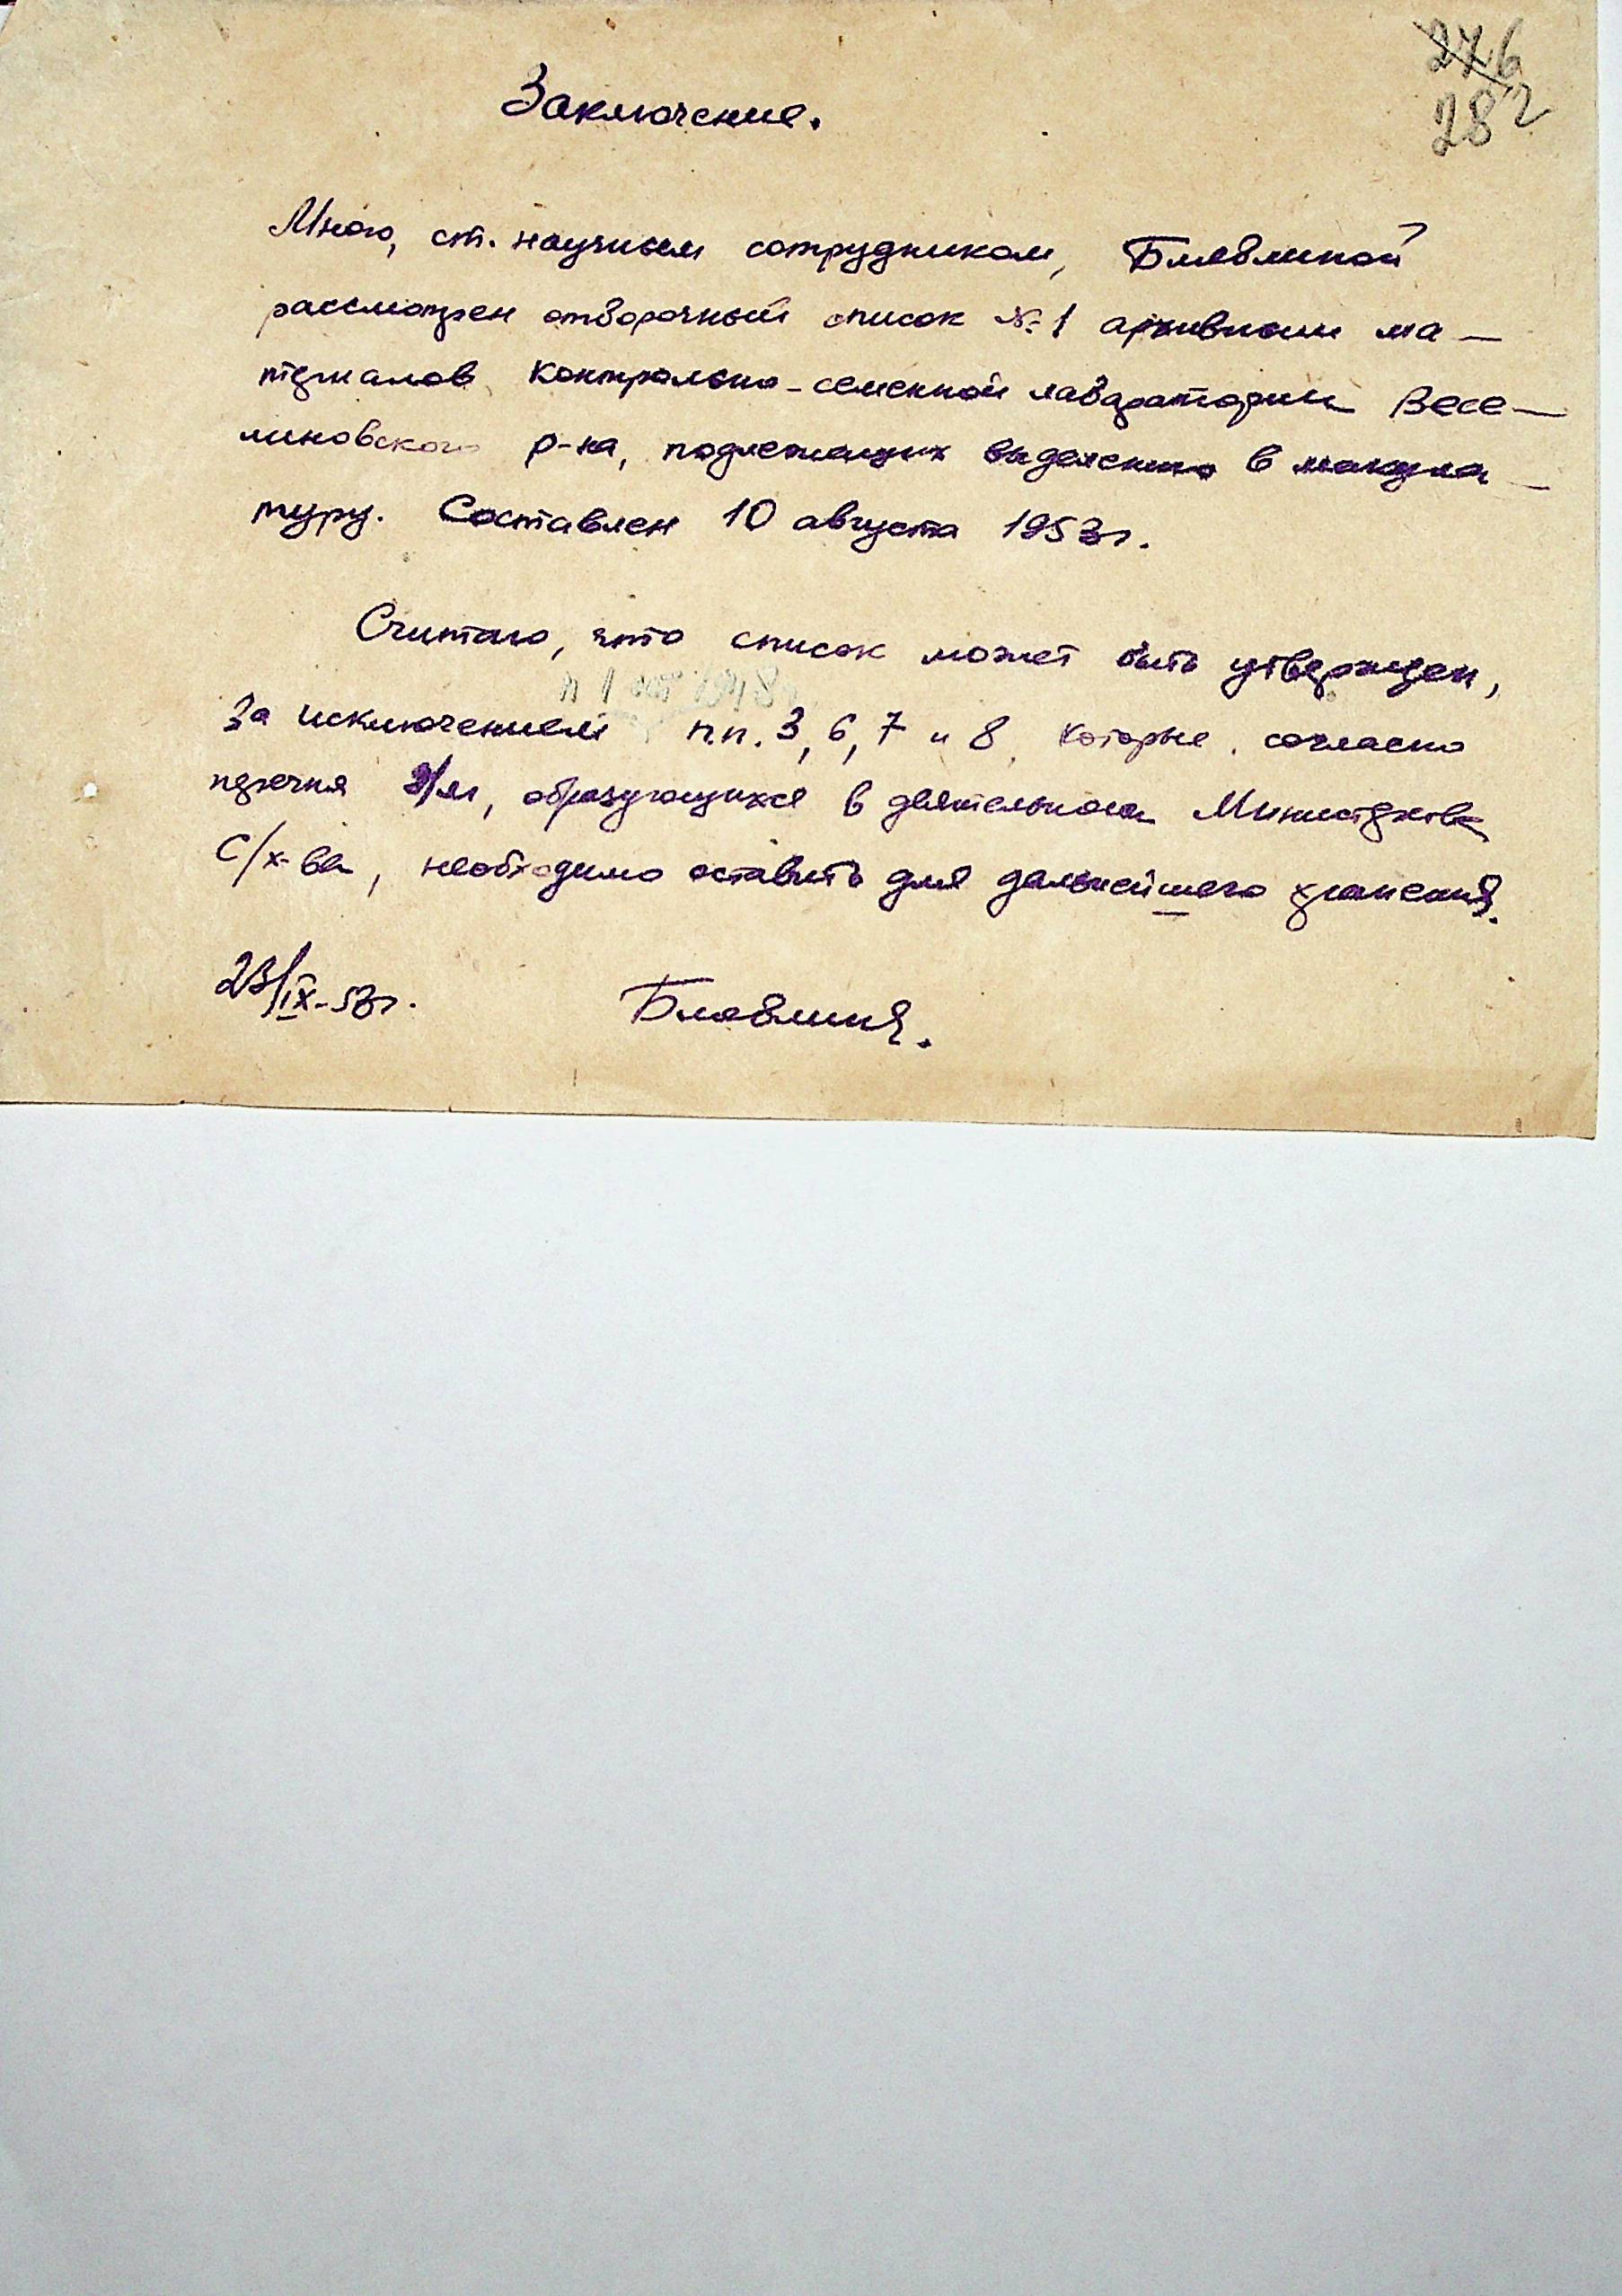 276
282
Заключение.
Мною, ст. научным сотрудником, Блявлиной
рассмотрен отборочный список № 1 архивных ма-
териалов контрольно-семенной лаборатории Весе-
линовского р-на, подлежащих выделению в макула-
туру. Составлен 10 августа 1953г.
Считаю, что список может быть утвержден,
п 1 от 1948
за исключением п.п. 3, 6, 7 и 8, которые, согласно
перечня д/м, образующихся в деятельности Министерства
С/х-ва, необходимо оставить для дальнейшего хранения.
23/IX-53г.